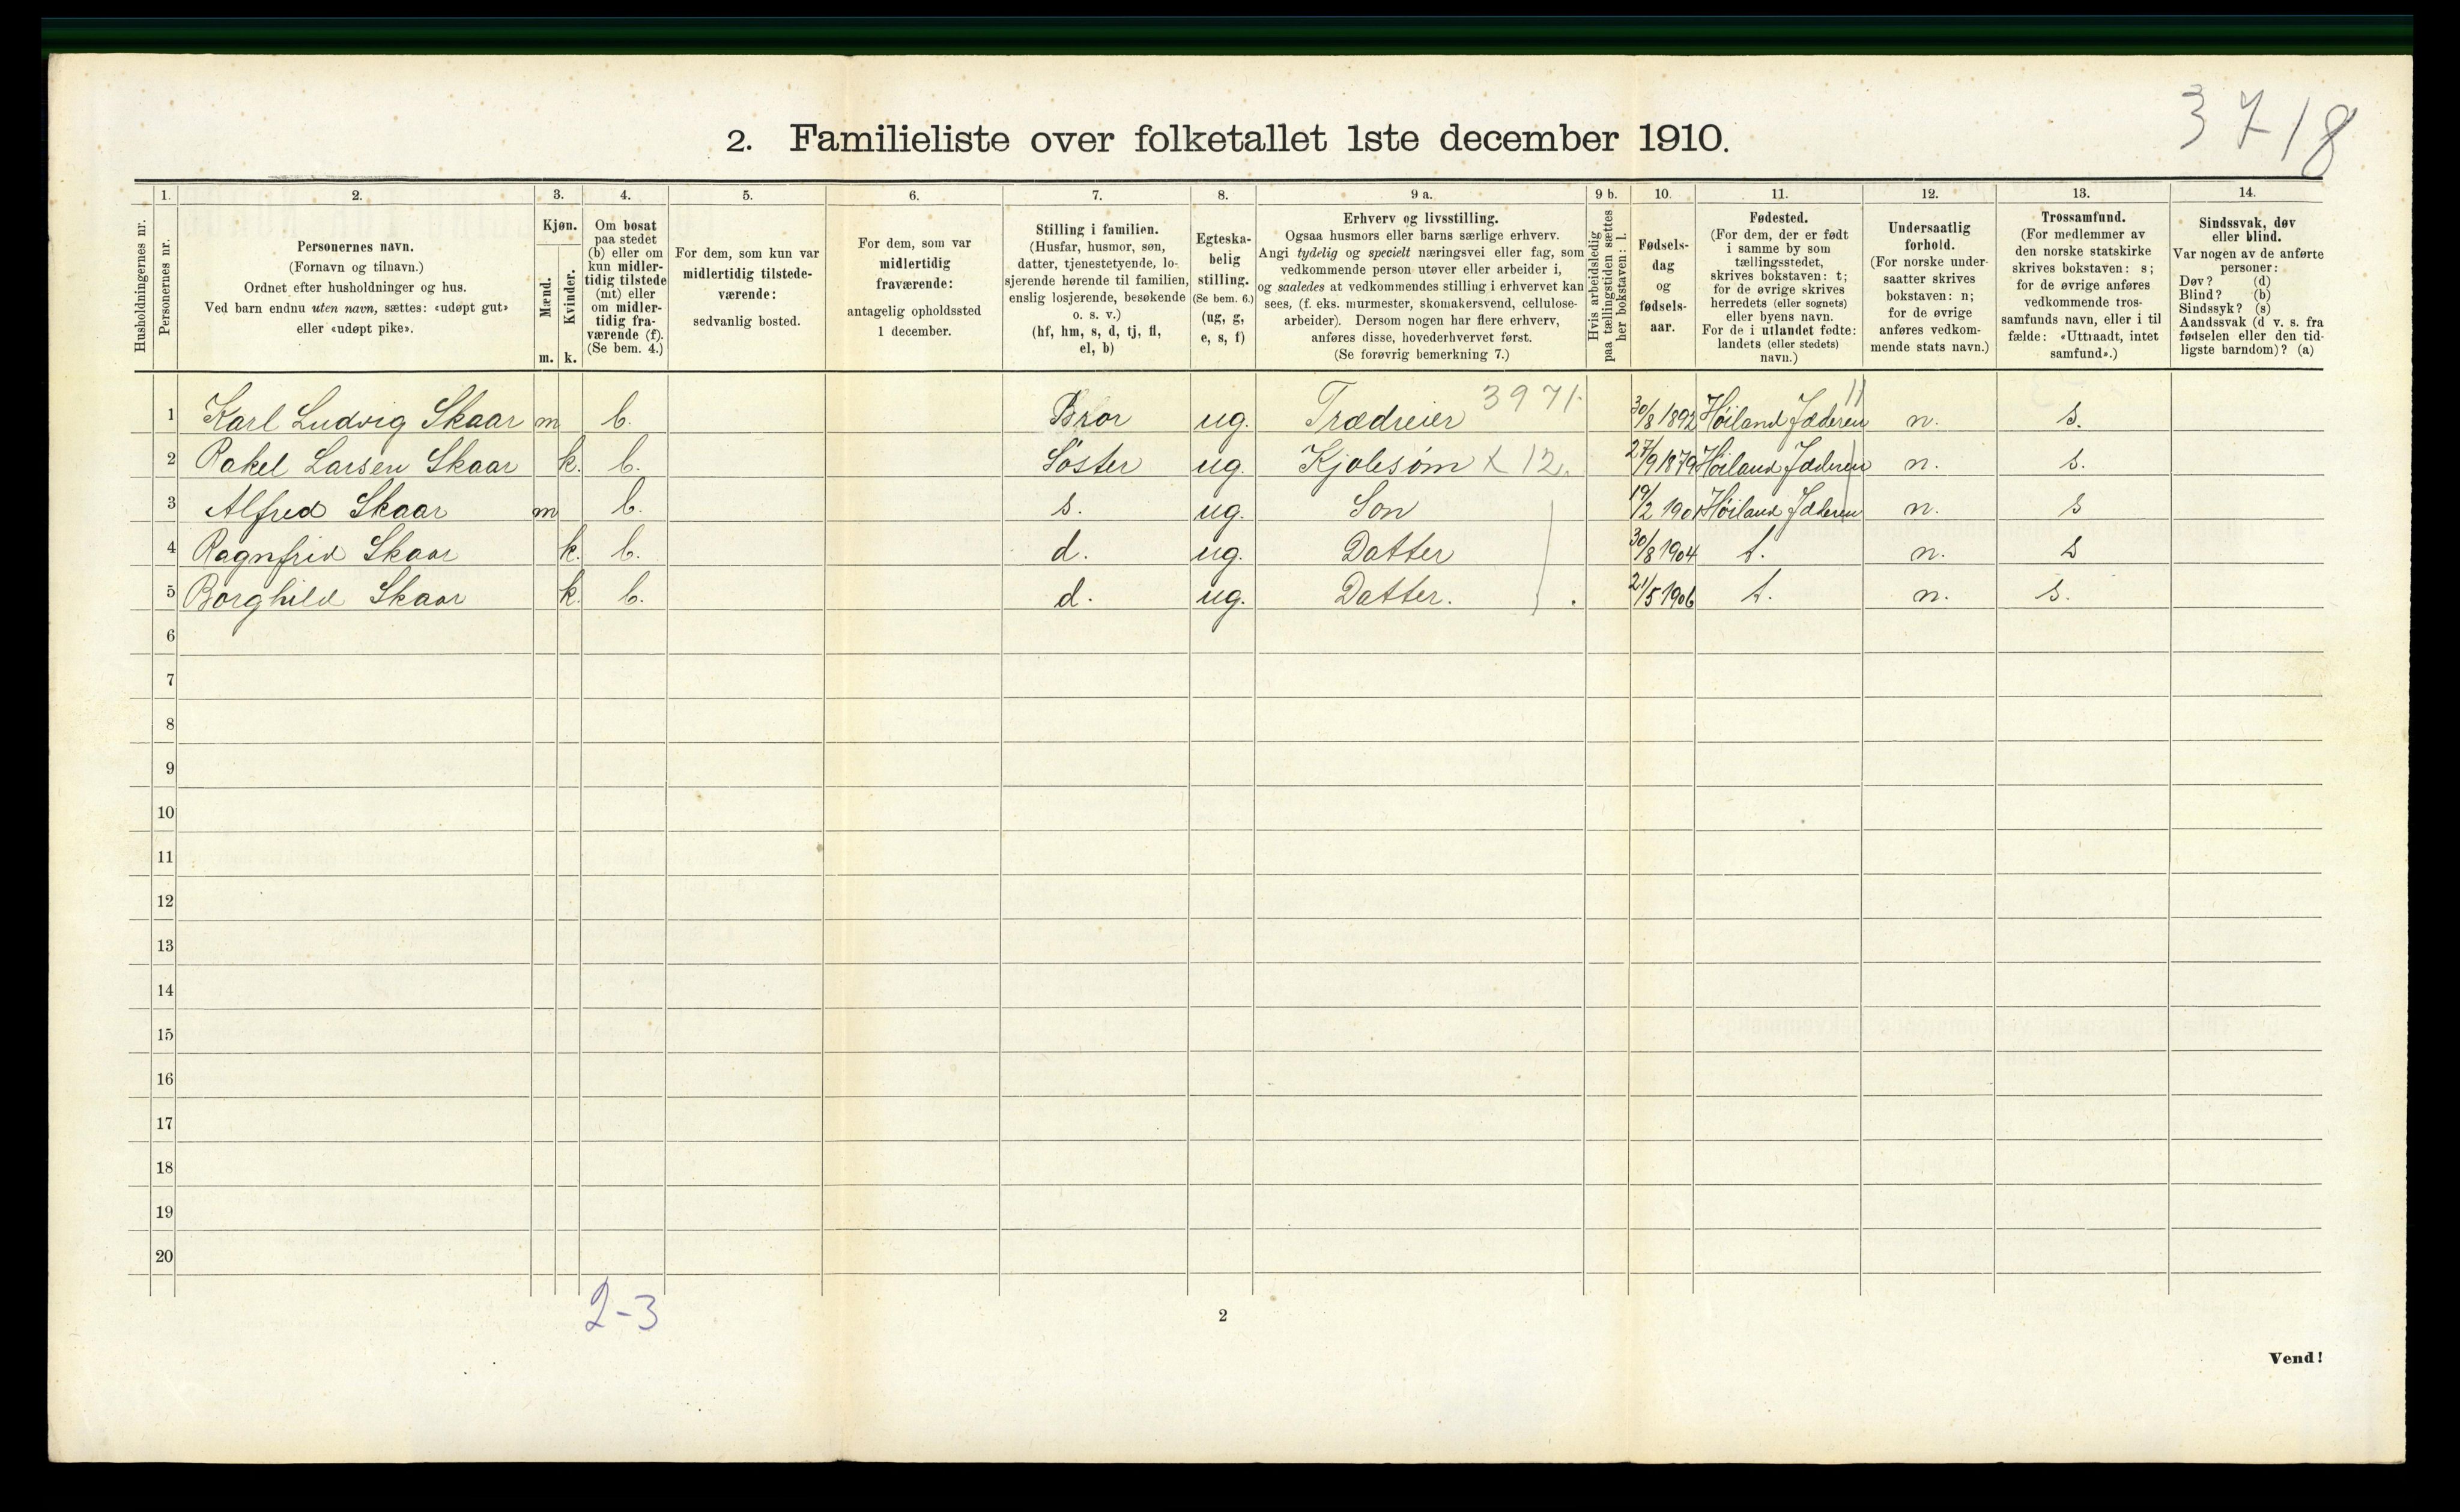 3718
2. Familieliste over folketallet 1ste december 1910.
Husholdningernes nr.
1.
Personernes nr.
2.
Personernes navn.
(Fornavn og tilnavn.)
Ordnet efter husholdninger og hus.
Ved barn endnu uten navn, sættes: «udøpt gut»
eller «udøpt pike».
3.
Kjøn.
Mænd.
Kvinder.
m. k.
4.
Om bosat
paa stedet
(b) eller om
kun midler-
tidig tilstede
(mt) eller
om midler-
tidig fra-
værende (f).
(Se bem. 4.)
5.
For dem, som kun var
midlertidig tilstede-
værende:
sedvanlig bosted.
6.
For dem, som var
midlertidig
fraværende:
antagelig opholdssted
1 december.
7.
Stilling i familien.
(Husfar, husmor, søn,
datter, tjenestetyende, lo-
sjerende hørende til familien,
enslig losjerende, besøkende
o. s. v.)
(hf, hm, s, d, tj, fl,
el, b)
8.
Egteska-
belig
stilling.
(Se bem. 6.)
(ug, g,
e, s, f)
9 a.
Erhverv og livsstilling.
Ogsaa husmors eller barns særlige erhverv.
Angi tydelig og specielt næringsvei eller fag, som
vedkommende person utøver eller arbeider i,
og saaledes at vedkommendes stilling i erhvervet kan
sees, (f. eks. murmester, skomakersvend, cellulose-
arbeider). Dersom nogen har flere erhverv,
anføres disse, hovederhvervet først.
(Se forøvrig bemerkning 7.)
9 b.
Hvis arbeidsledig
paa tællingstiden sættes
her bokstaven: l.
10.
Fødsels-
dag
og
fødsels-
aar.
11.
Fødested.
(For dem, der er født
i samme by som
tællingsstedet,
skrives bokstaven: t;
for de øvrige skrives
herredets (eller sognets)
eller byens navn.
For de i utlandet fødte:
landets (eller stedets)
navn.)
12.
Undersaatlig
forhold.
(For norske under-
saatter skrives
bokstaven: n;
for de øvrige
anføres vedkom-
mende stats navn.)
13.
Trossamfund.
(For medlemmer av
den norske statskirke
skrives bokstaven: s;
for de øvrige anføres
vedkommende tros-
samfunds navn, eller i til
fælde: «Uttraadt, intet
samfund».)
14.
Sindssvak, døv
eller blind.
Var nogen av de anførte
personer:
Døv? (d)
Blind? (b)
Sindssyk? (s)
Aandssvak (d v. s. fra
fødselen eller den tid-
ligste barndom)? (a)
1 Karl Ludvig Skaar m b. Bror ug. Trædreier 3971. 30/8 1892 Høiland Jæderen n. s.
2 Rakel Larsen Skaar k. b. Søster ug. Kjolesøm x 12. 27/9 1879 Høiland Jæderen n. s.
3 Alfred Skaar m b. s. ug. Son 19/2 1901 Høiland Jæderen n. s
4 Ragnfrid Skaar k. b. d. ug. Datter 30/8 1904 t. n. s
5 Borghild Skaar k. b. d. ug. Datter. 21/5 1906 t. n. s.
6
7
8
9
10
11
12
13
14
15
16
17
18
19
20
2-3
2
Vend!